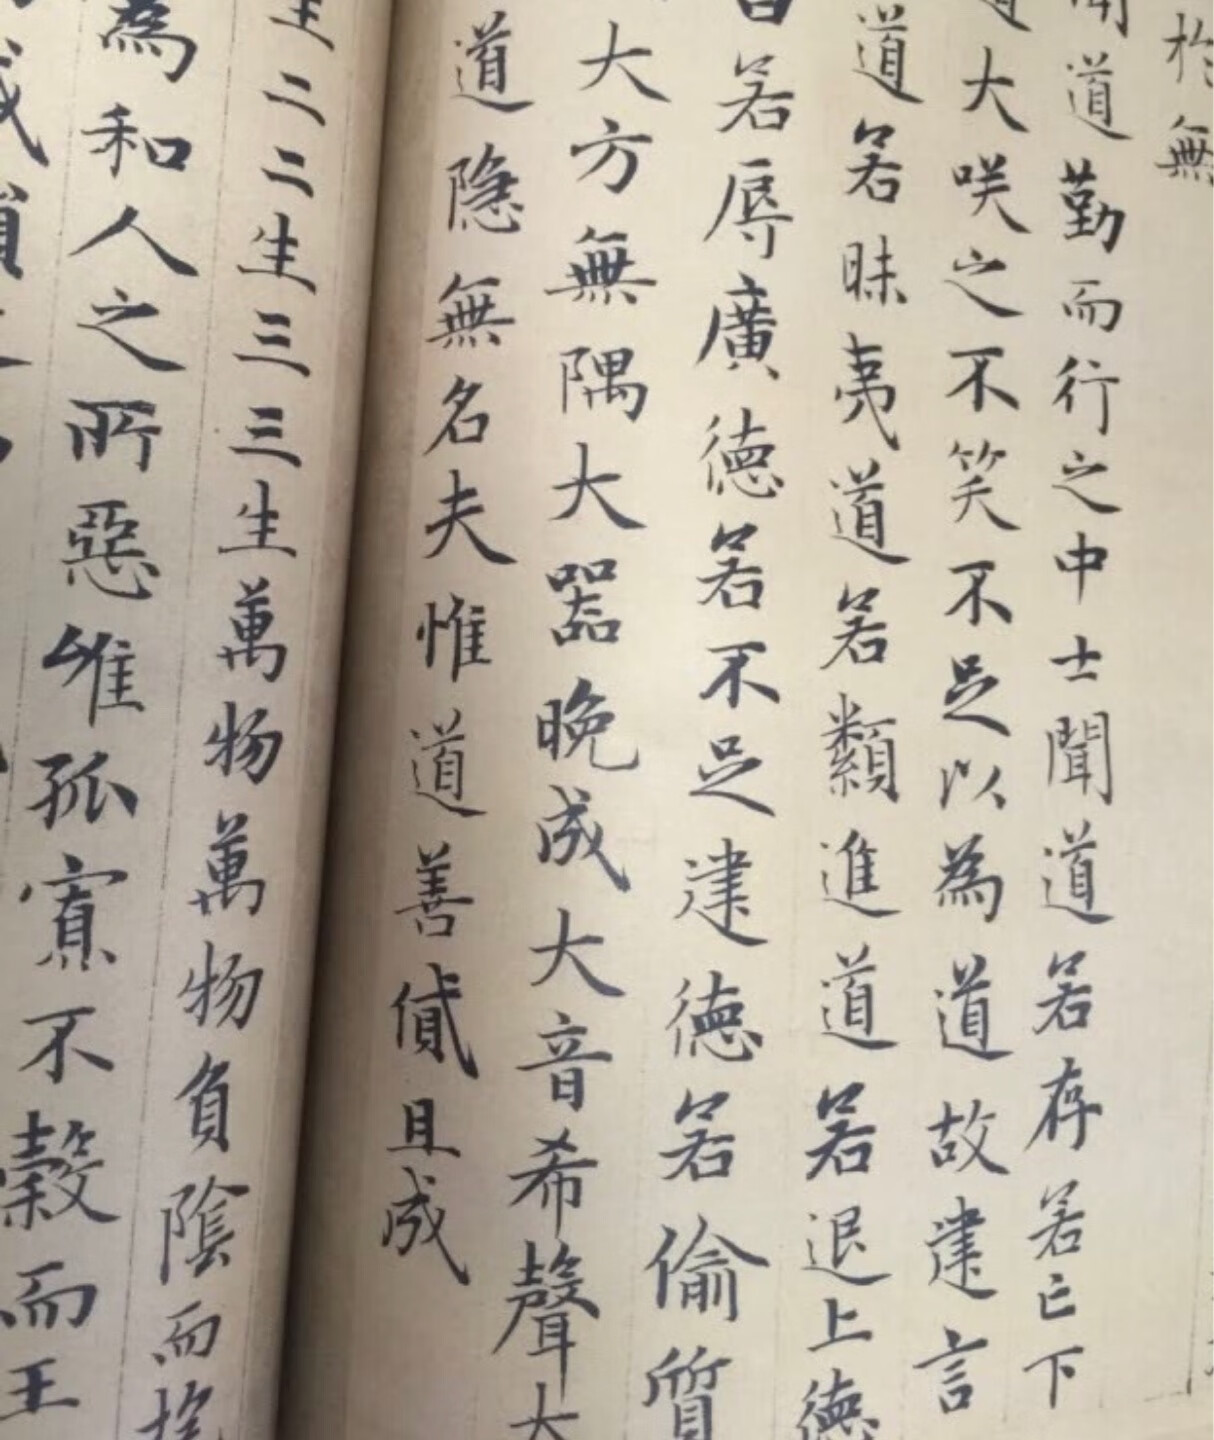 於無
聞道勤而行之中士聞道若存若亡下
道大咲之不笑不足以為道故建言
道若昧夷道若類進道若退上德
若辱廣德若不足建德若偷質
大方無隅大器晚成大音希聲大
道隱無名夫惟道善貸且成
生二二生三三生萬物萬物負陰而抱
為和人之所惡唯孤寡不穀而王